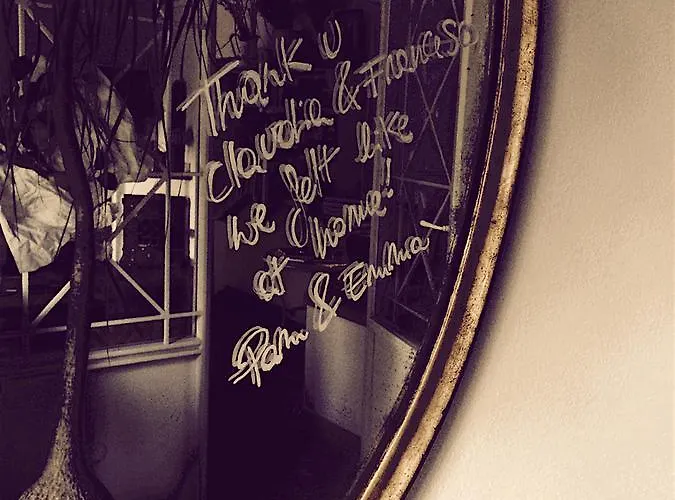 Thank u
Claudia & Francesco
we felt like
at home!
Pam & Emma